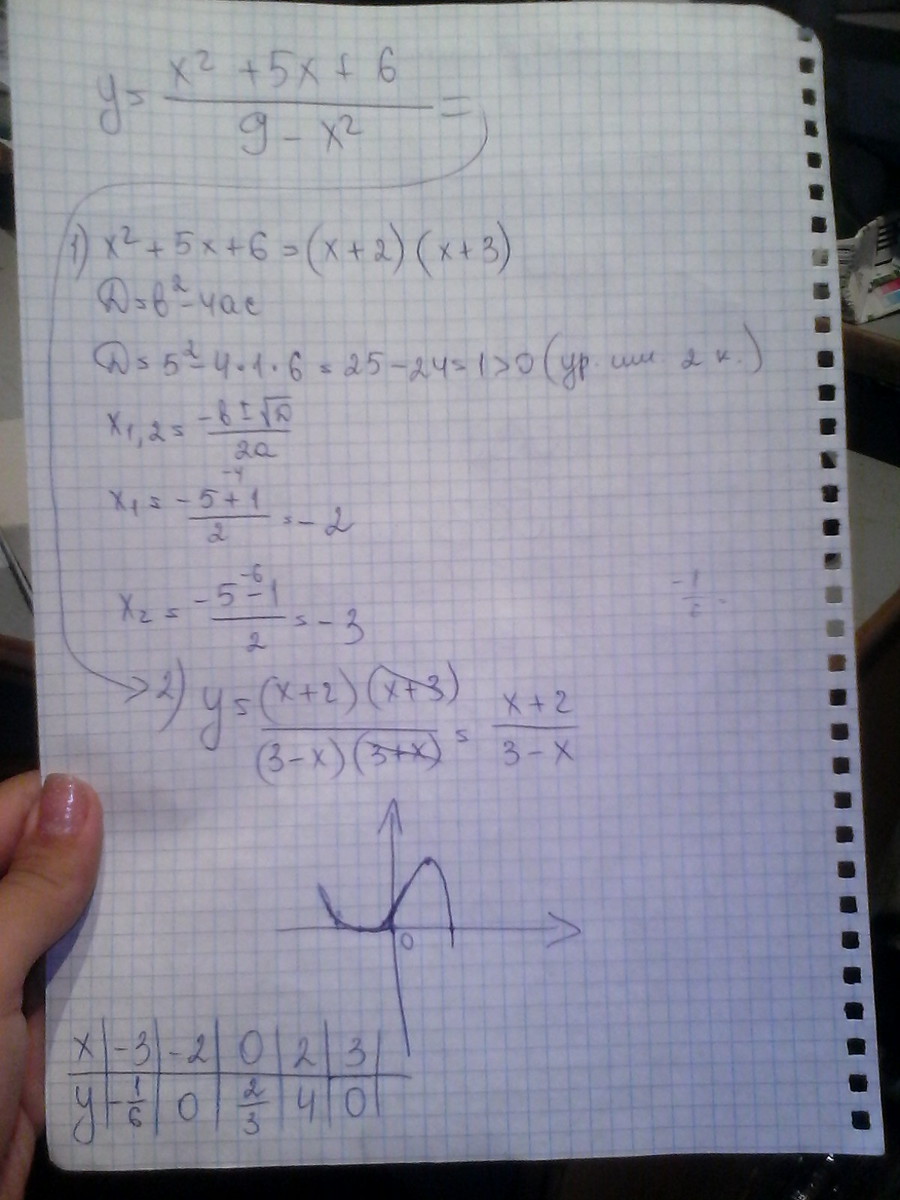 y = (x² + 5x + 6) / (9 - x²) =
1) x² + 5x + 6 = (x + 2) (x + 3)
D = b² - 4ac
D = 5² - 4·1·6 = 25 - 24 = 1 > 0 (ур. 2 к.)
x₁,₂ = (-b ± √D) / 2a
x₁ = (-5 + 1) / 2 = -2
-4
x₂ = (-5 - 1) / 2 = -3
-6
2) y = (x+2) (x+3) / (3-x) (3+x) = (x+2) / (3-x)
0
x | -3 | -2 | 0 | 2 | 3 |
y | -1/6 | 0 | 2/3 | 4 | 0 |